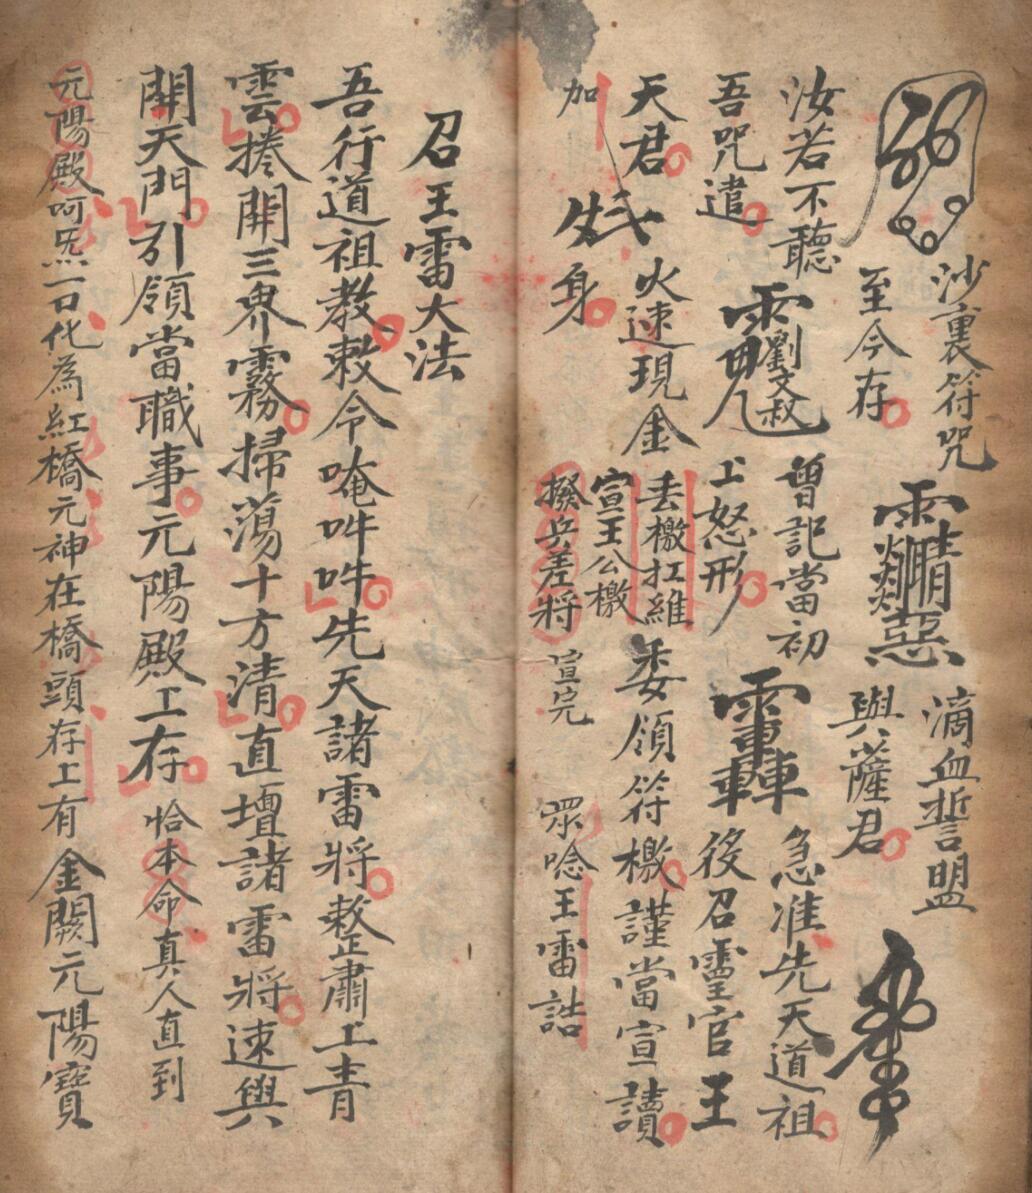 沙裏符咒
滴血誓盟
至今存
與薩君
汝若不聽
曾記當初
急准先天道祖
吾咒遣
劉文叔
上怒形
後召靈官王
天君
火速現金
去檄扛維
宣王公檄
委領符檄謹當宣讀
加
身
撥兵差將
宣完
眾唸王雷誥
召王雷大法
吾行道祖教敕令唵吽吽先天諸雷將整肅上青
雲捲開三界霧掃蕩十方清直壇諸雷將速與
開天門引領當職事元陽殿上存恰本命真人直到
元陽殿呵炁一口化為紅橋元神在橋頭存上有金闕元陽寶